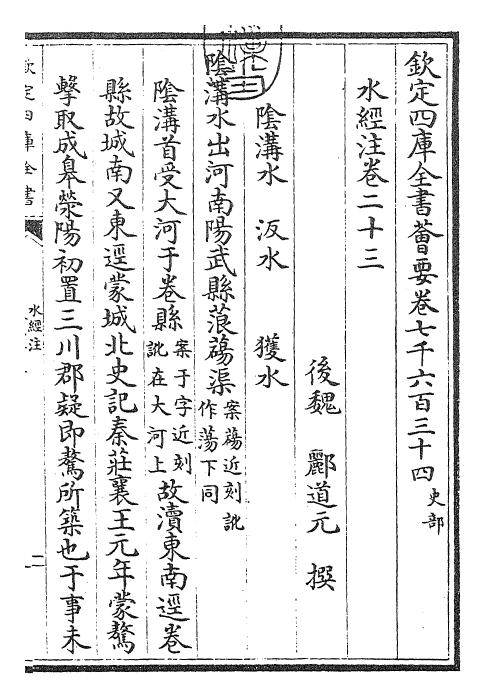 欽定四庫全書薈要卷七千六百三十四 史部
水經注卷二十三
後魏 酈道元 撰
陰溝水 汳水 獲水
陰溝水出河南陽武縣蒗蕩渠 案蕩近刻訛作蕩下同
陰溝首受大河于卷縣 案于字近刻訛在大河上 故瀆東南逕卷
縣故城南又東逕蒙城北史記秦莊襄王元年蒙驁
擊取成皋滎陽初置三川郡疑即驁所築也于事未
欽定四庫全書
水經注